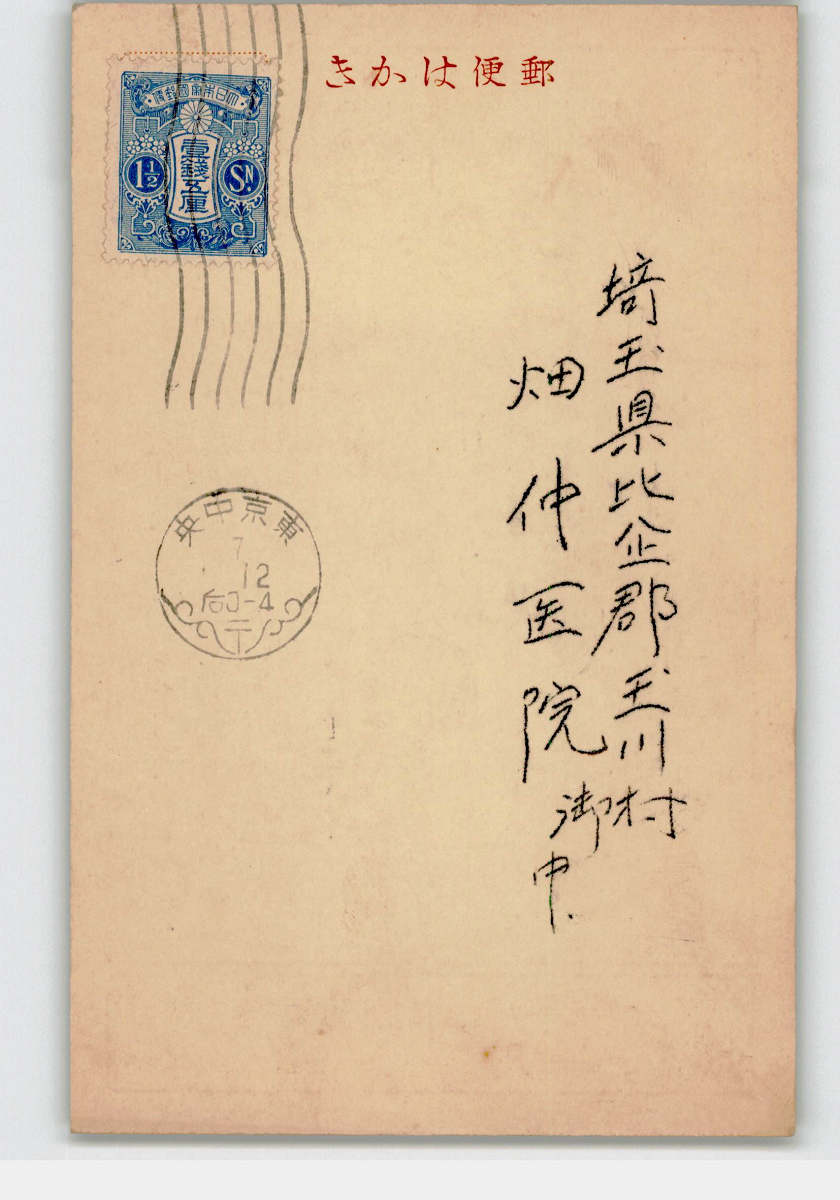 きかは便郵
大日本帝國郵便
壹銭五厘
1½
SN
埼玉県比企郡玉川村
畑仲医院
御中
央中京東
7
12
后0-4